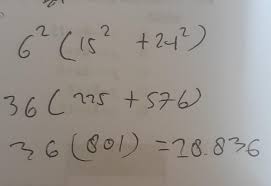 6² (15² + 24²)
36 (225 + 576)
36 (801) = 28.836